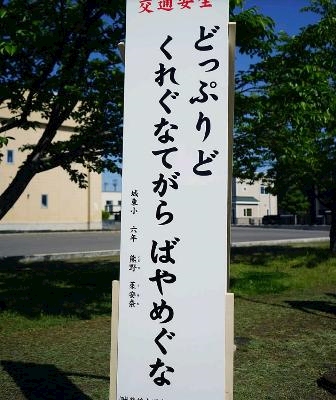 交通安全
どっぷりど
くれぐなてがら ばやめぐな
城東小 六年 熊野 茉安奈